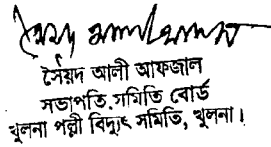 সৈয়দ আলী আফজাল
সভাপতি. সমিতি বোর্ড
খুলনা পল্লী বিদ্যুৎ সমিতি, খুলনা।